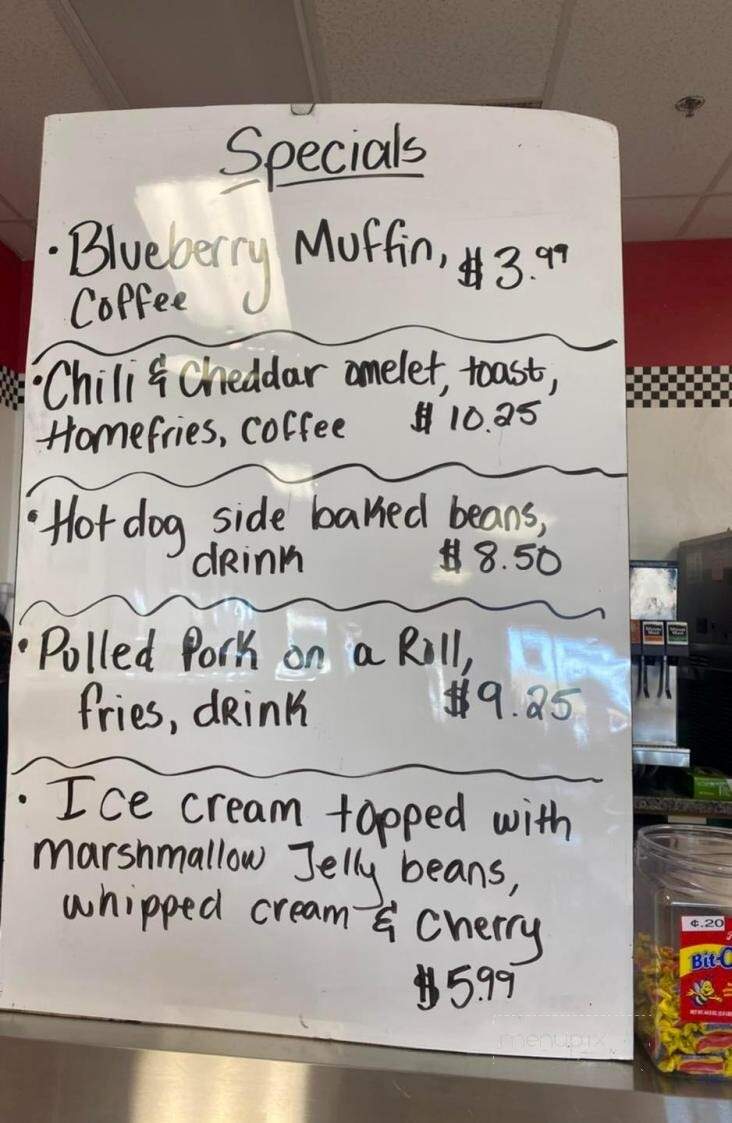 Specials
• Blueberry Muffin, $3.99
Coffee
• Chili & Cheddar omelet, toast,
Homefries, coffee $10.25
• Hot dog side baked beans,
drink $8.50
• Pulled Pork on a Roll,
fries, drink $9.25
• Ice cream topped with
marshmallow Jelly beans,
whipped cream & Cherry
$5.99
¢.20
Bit-O
menupix